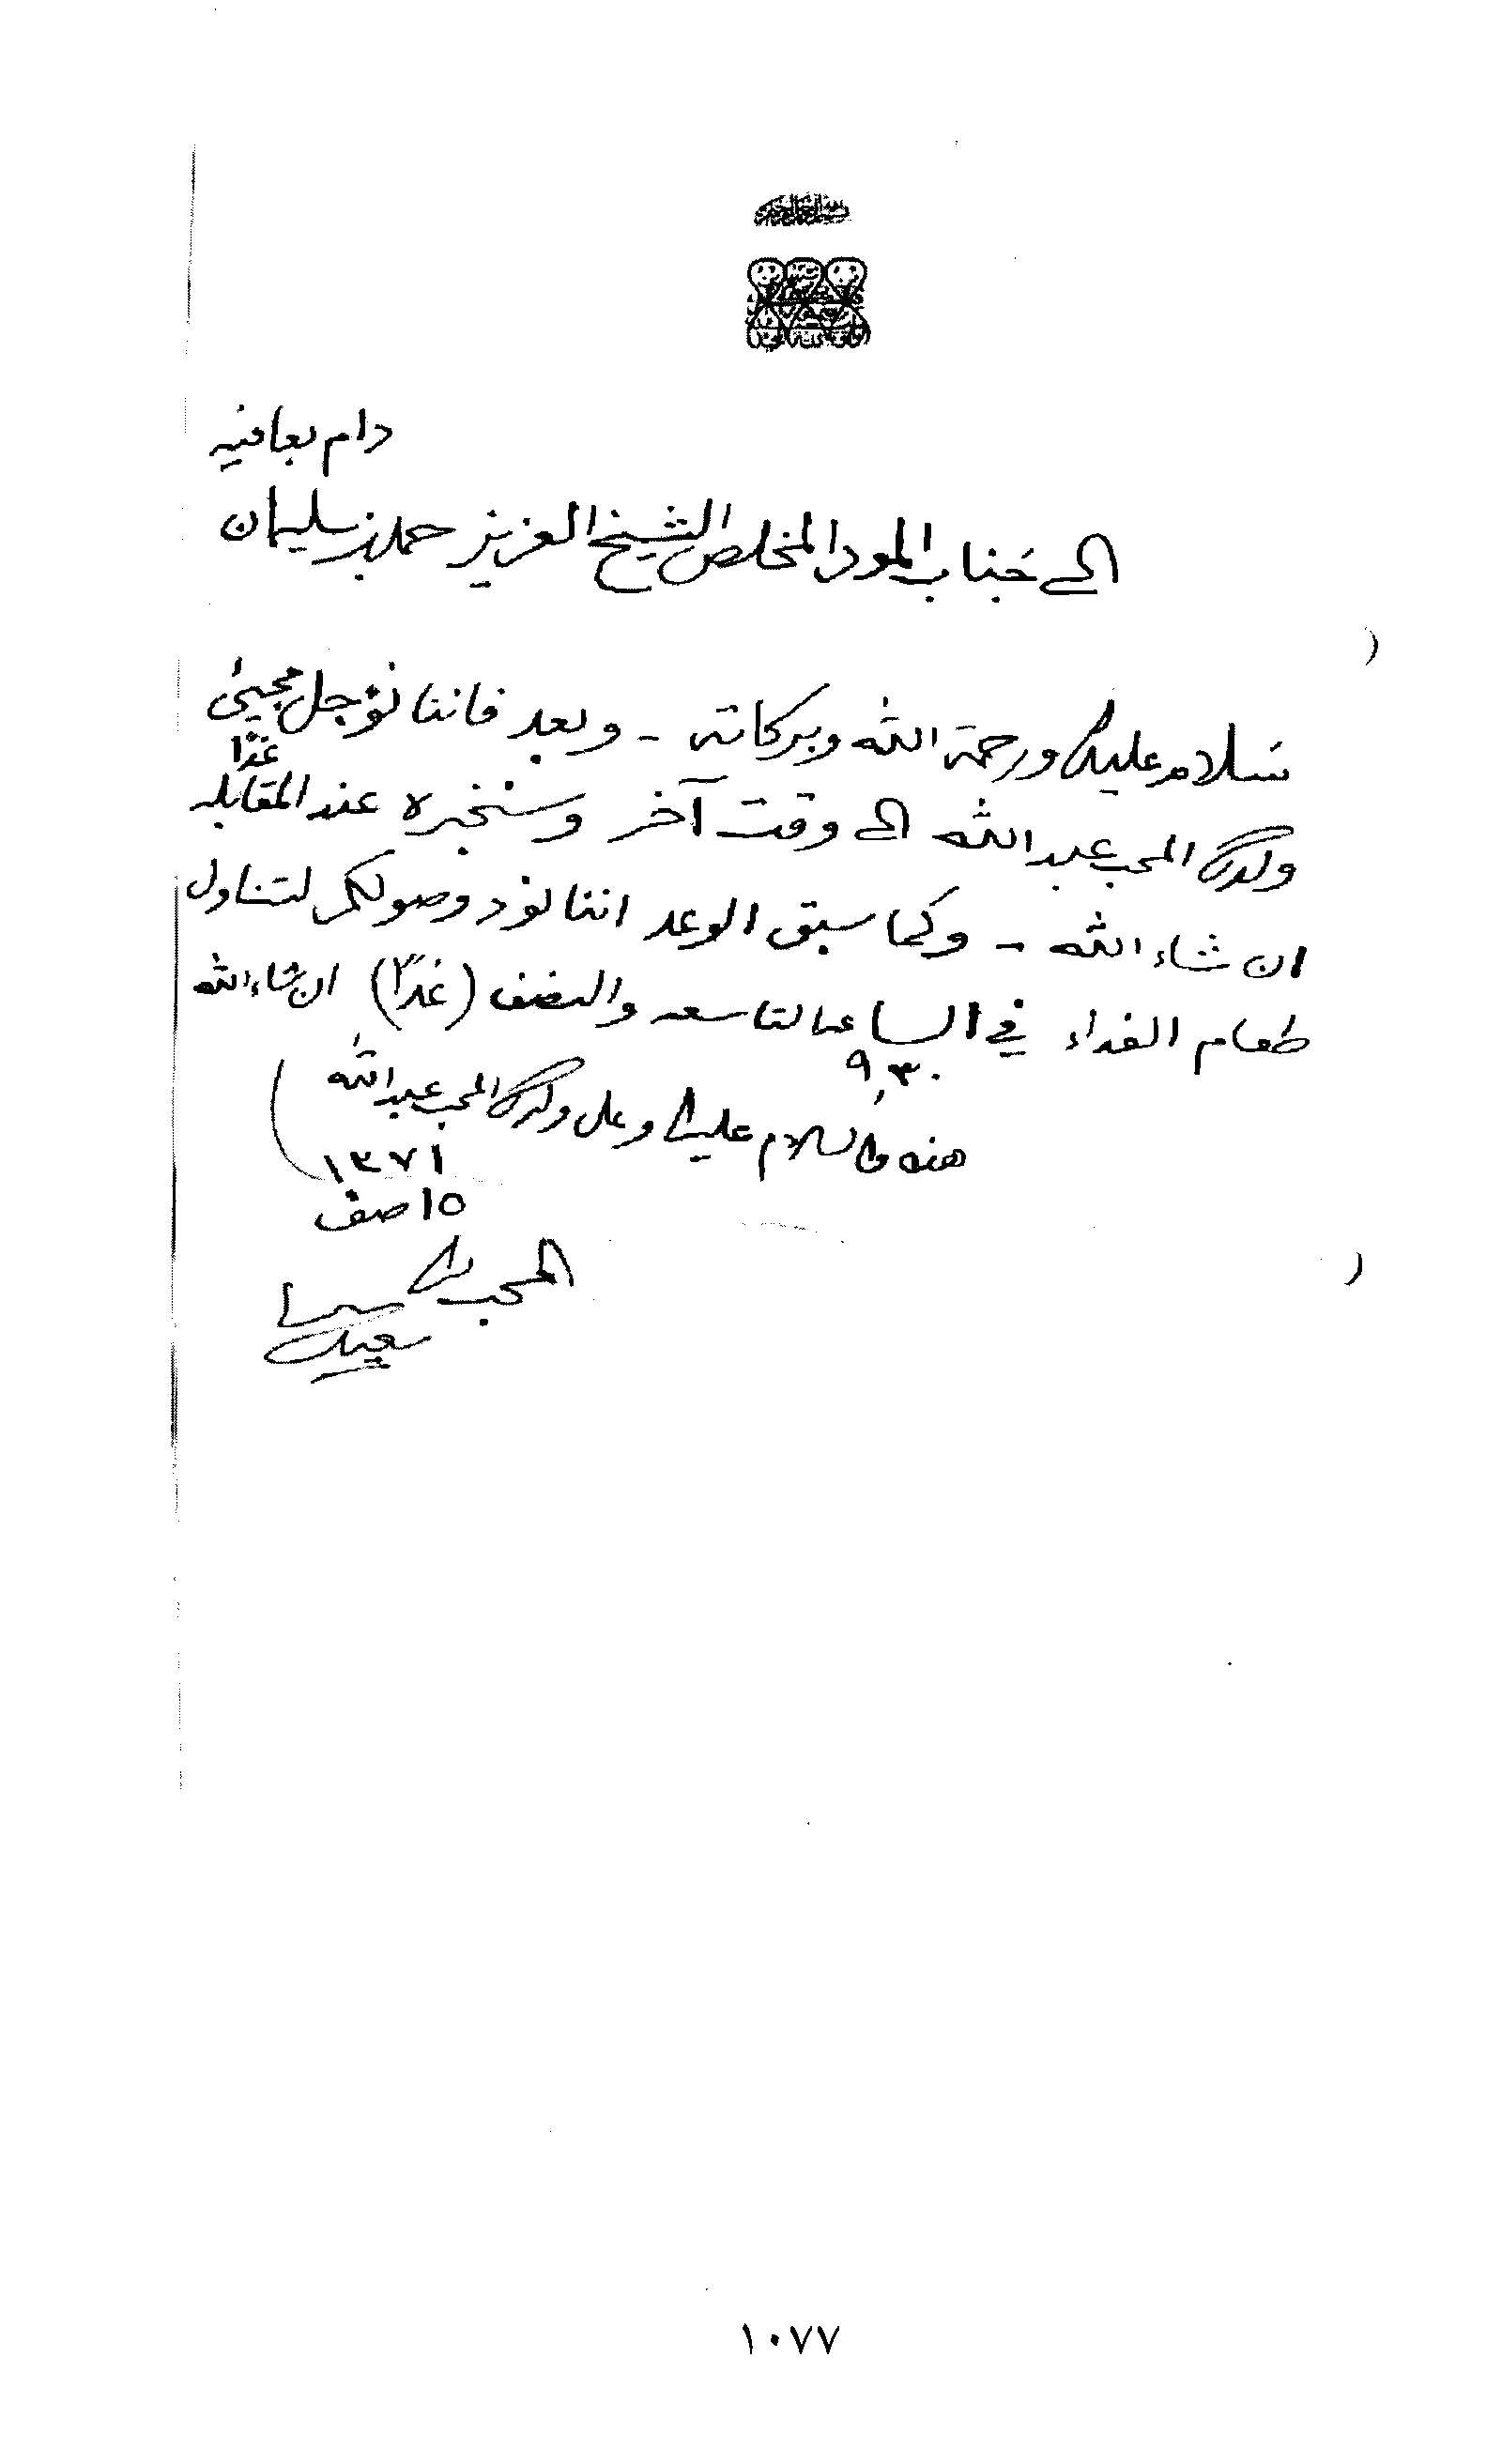 دام بعافيه
الى جناب المود المخلص الشيخ العزيز حمد بن سليمان
سلام عليك ورحمة الله وبركاته - وبعد فاننا نؤجل مجيئ
ولدك المحب عبدالله الى وقت آخر وسنخبره عند المقابله غدًا
ان شاء الله - وكما سبق الوعد اننا نود وصولكم لتناول
طعام الغداء في الساعه التاسعه والنصف (غدًا) ان شاء الله
٩,٣٠
هذه والسلام عليك وعلى ولدك المحب عبدالله
١٣٧١
١٥ صفر
المحب لك
سعيد
١٠٧٧